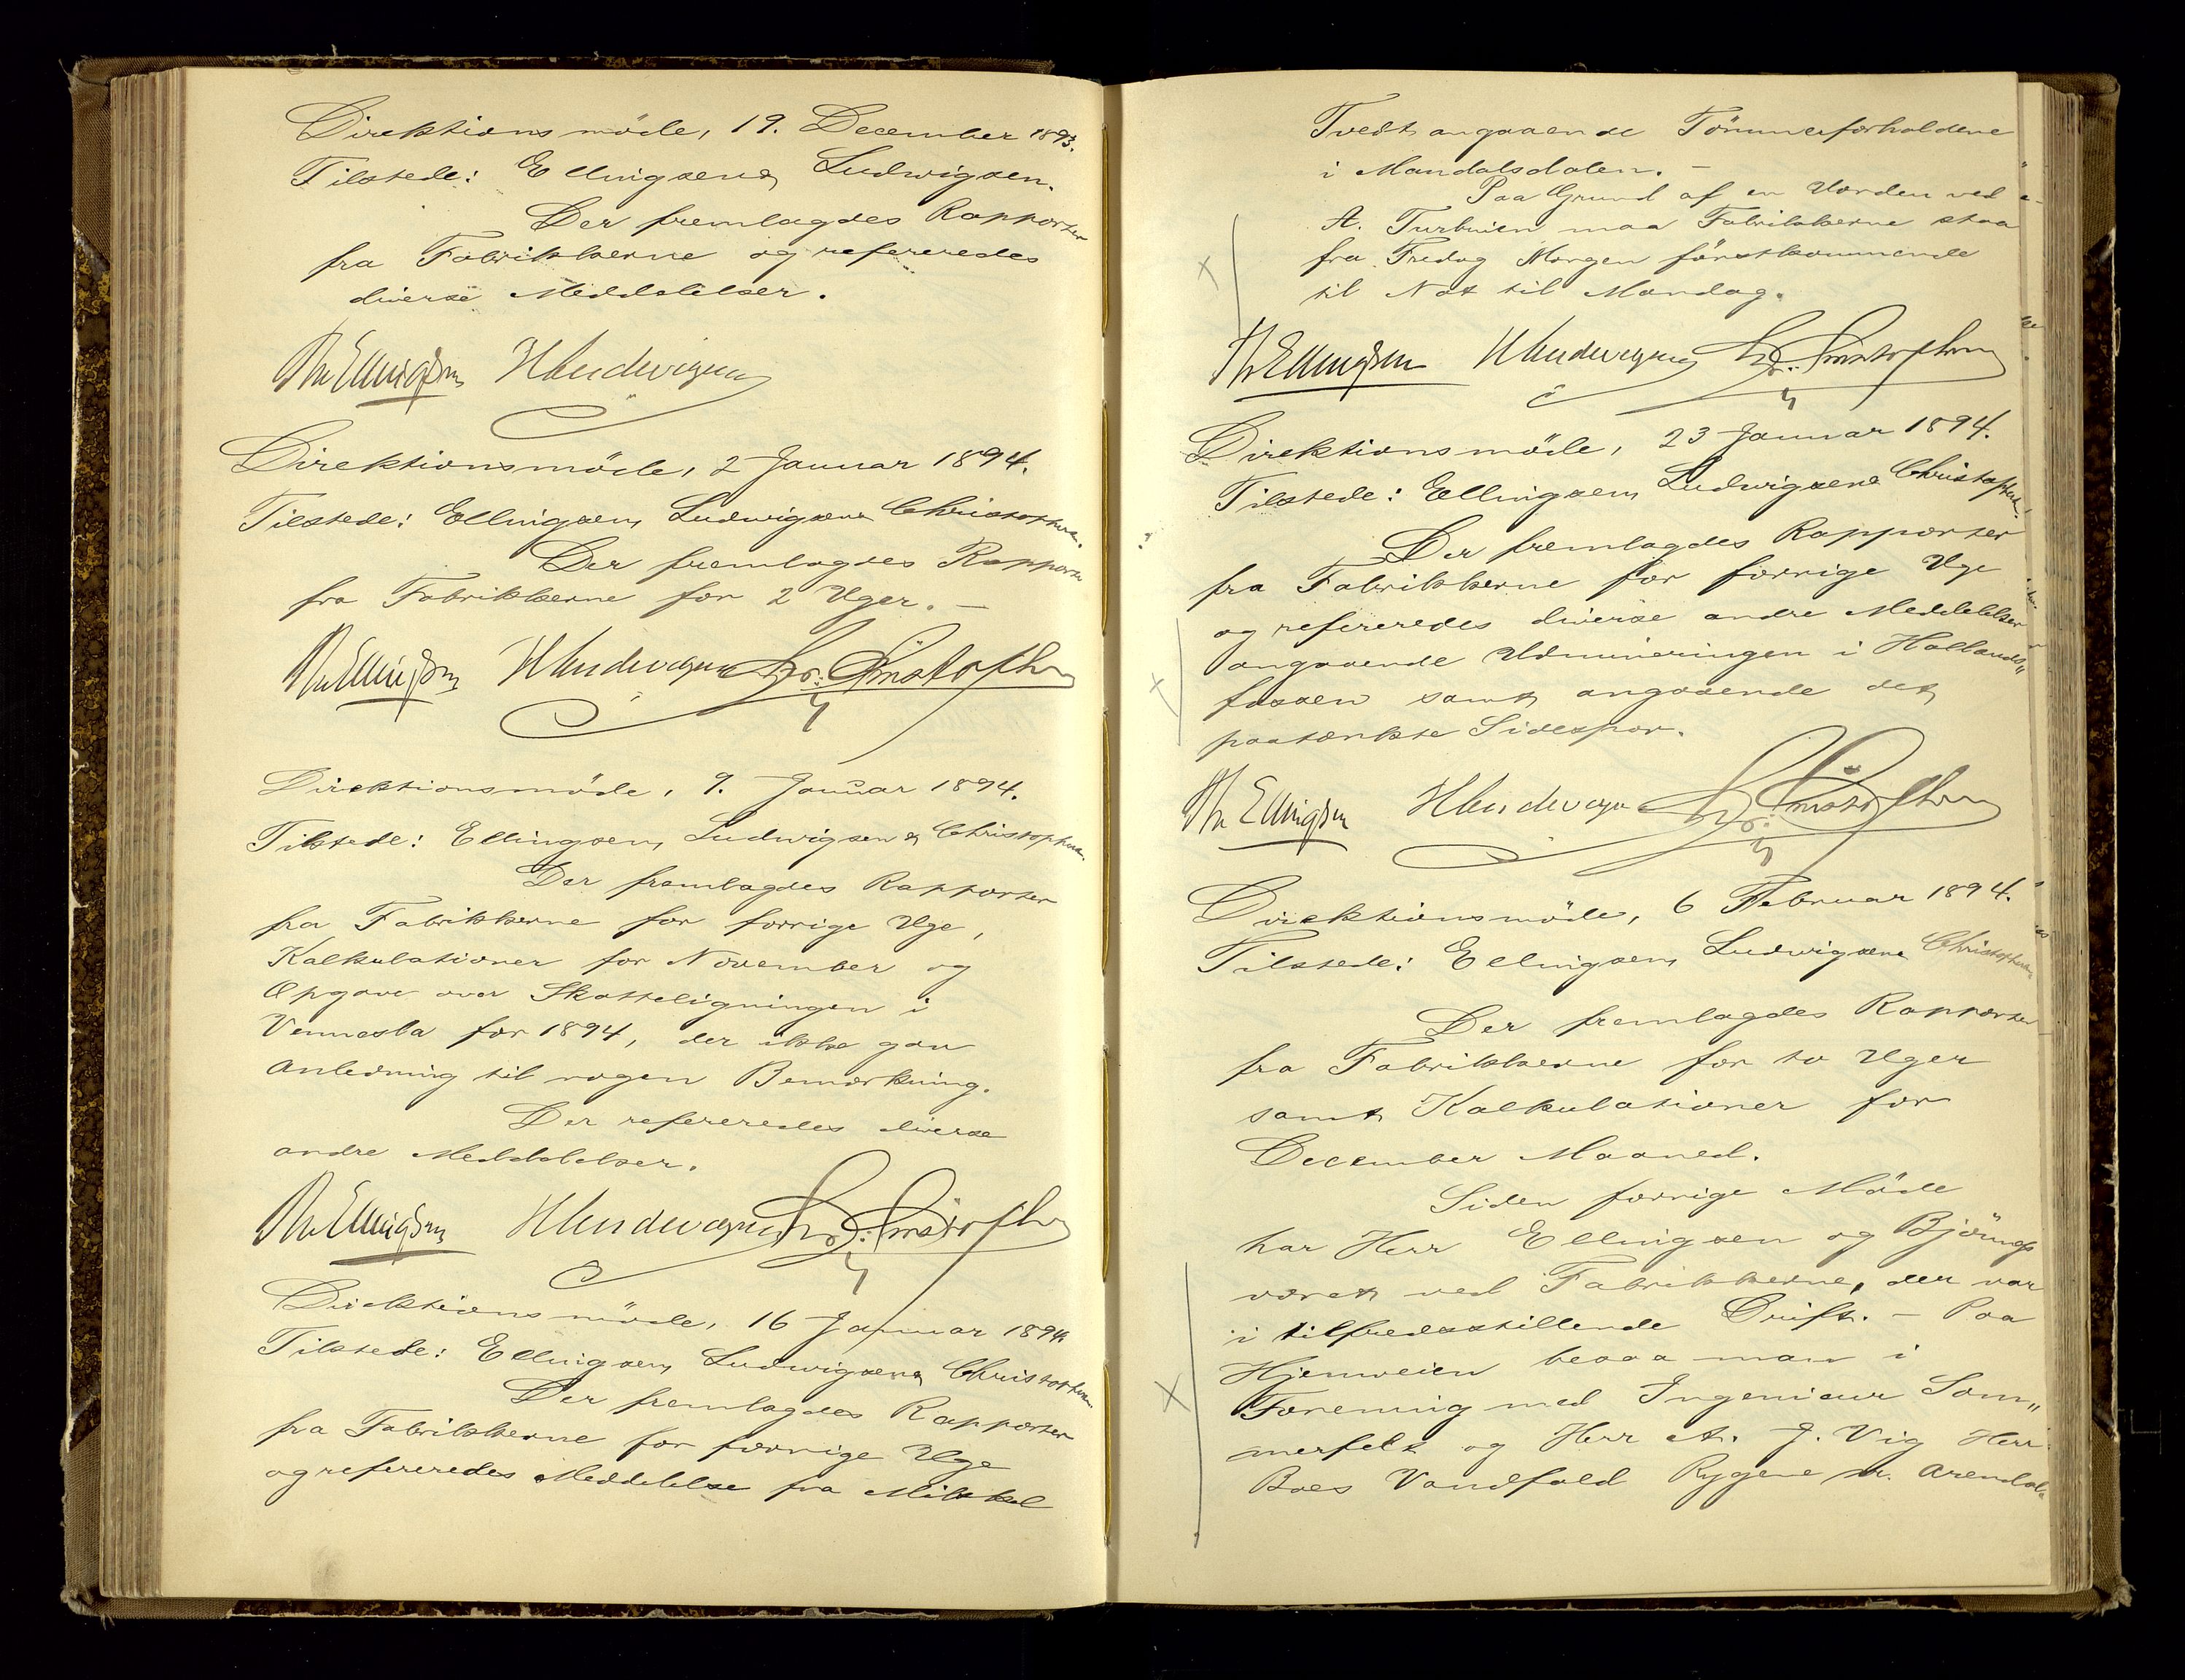 Direktionsmöde, 19. December 1893.
Tilstede: Ellingsen & Ludwigsen.
Der fremlagdes Rapporter
fra Fabrikkerne og refereredes
diverse Meddelelser.
Th Ellingsen HLudwigsen
Direktionsmöde, 2 Januar 1894.
Tilstede: Ellingsen, Ludwigsen & Christophersen.
Der fremlagdes Rapporter
fra Fabrikkerne for 2 Uger. —
Th Ellingsen HLudwigsen Chr. Christophersen
Direktionsmöde, 9. Januar 1894.
Tilstede: Ellingsen, Ludwigsen & Christophersen.
Der fremlagdes Rapporter
fra Fabrikkerne for forrige Uge,
Kalkulationer for November og
Opgave over Skatteligningen i
Vennesla for 1894, der ikke gav
Anledning til nogen Bemærkning.
Der refereredes diverse
andre Meddelelser.
Th Ellingsen HLudwigsen Chr. Christophersen
Direktionsmöde, 16 Januar 1894
Tilstede: Ellingsen, Ludwigsen & Christophersen.
Der fremlagdes Rapporter
fra Fabrikkerne for forrige Uge
og refereredes Meddelelse fra Mikkel
Tvedt angaaende Tömmerforholdene
i Mandalsdalen. —
Paa Grund af en Uorden ved
A. Turbinen maa Fabrikkerne staa
fra Fredag Morgen förstkommende
til Nat til Mandag.
Th Ellingsen HLudwigsen Chr. Christophersen
Direktionsmöde, 23 Januar 1894.
Tilstede: Ellingsen, Ludwigsen & Christophersen.
Der fremlagdes Rapporter
fra Fabrikkerne for forrige Uge
og refereredes diverse andre Meddelelser
angaaende Udmineringen i Hallands„
fossen samt angaaende det
paatænkte Sidespor.
Th Ellingsen HLudwigsen Chr. Christophersen
Direktionsmöde, 6 Februar 1894.
Tilstede: Ellingsen, Ludwigsen & Christophersen
Der fremlagdes Rapporter
fra Fabrikkerne for to Uger
samt Kalkulationer for
December Maaned.
Siden forrige Möde
har Herr Ellingsen og
været ved Fabrikkerne, der var
i tilfredsstillende Drift. — Paa
Hjemveien besaa man i
Forening med Ingenieur Som„
merfelt og Herr A. J. Vig Herr
Boes Vandfald Rygene nr. Arendal.